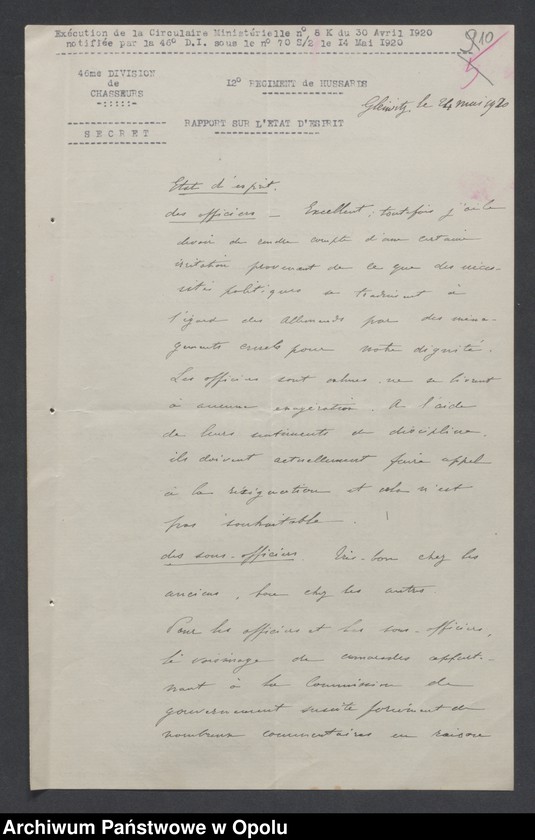 Exécution de la Circulaire Ministérielle n°. 8 K du 30 Avril 1920
notifiée par la 46° D.I. sous le n° 70 S/2 le 14 Mai 1920
910
46me DIVISION
de
CHASSEURS
-:::::-
12° REGIMENT de HUSSARDS
Gleiwitz, le 24 mai 1920
SECRET
RAPPORT SUR L'ETAT D'ESPRIT
Etat d'esprit.
des officiers — Excellent ; toutefois j'ai le
devoir de rendre compte d'une certaine
irritation provenant de ce que des néces-
sités politiques se traduisent à
l'égard des Allemands par des ména-
gements cruels pour notre dignité.
Les officiers sont calmes, ne se livrent
à aucune exagération. A l'aide
de leurs sentiments de discipline,
ils doivent actuellement faire appel
à la résignation et cela n'est
pas souhaitable.
des sous-officiers. Très-bon chez les
anciens, bon chez les autres.
Pour les officiers et les sous-officiers,
le voisinage de camarades apparte-
nant à la Commission de
gouvernement suscite forcément de
nombreux commentaires en raison
Archiwum Państwowe w Opolu